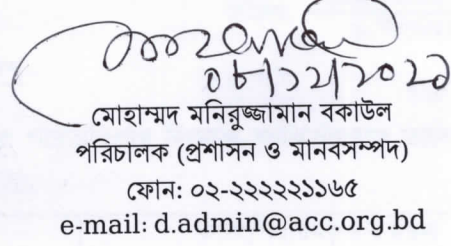 মোহাম্মদ মনিরুজ্জামান বকাউল
পরিচালক (প্রশাসন ও মানবসম্পদ)
ফোন: ০২-২২২২২১১৬৫
e-mail: d.admin@acc.org.bd